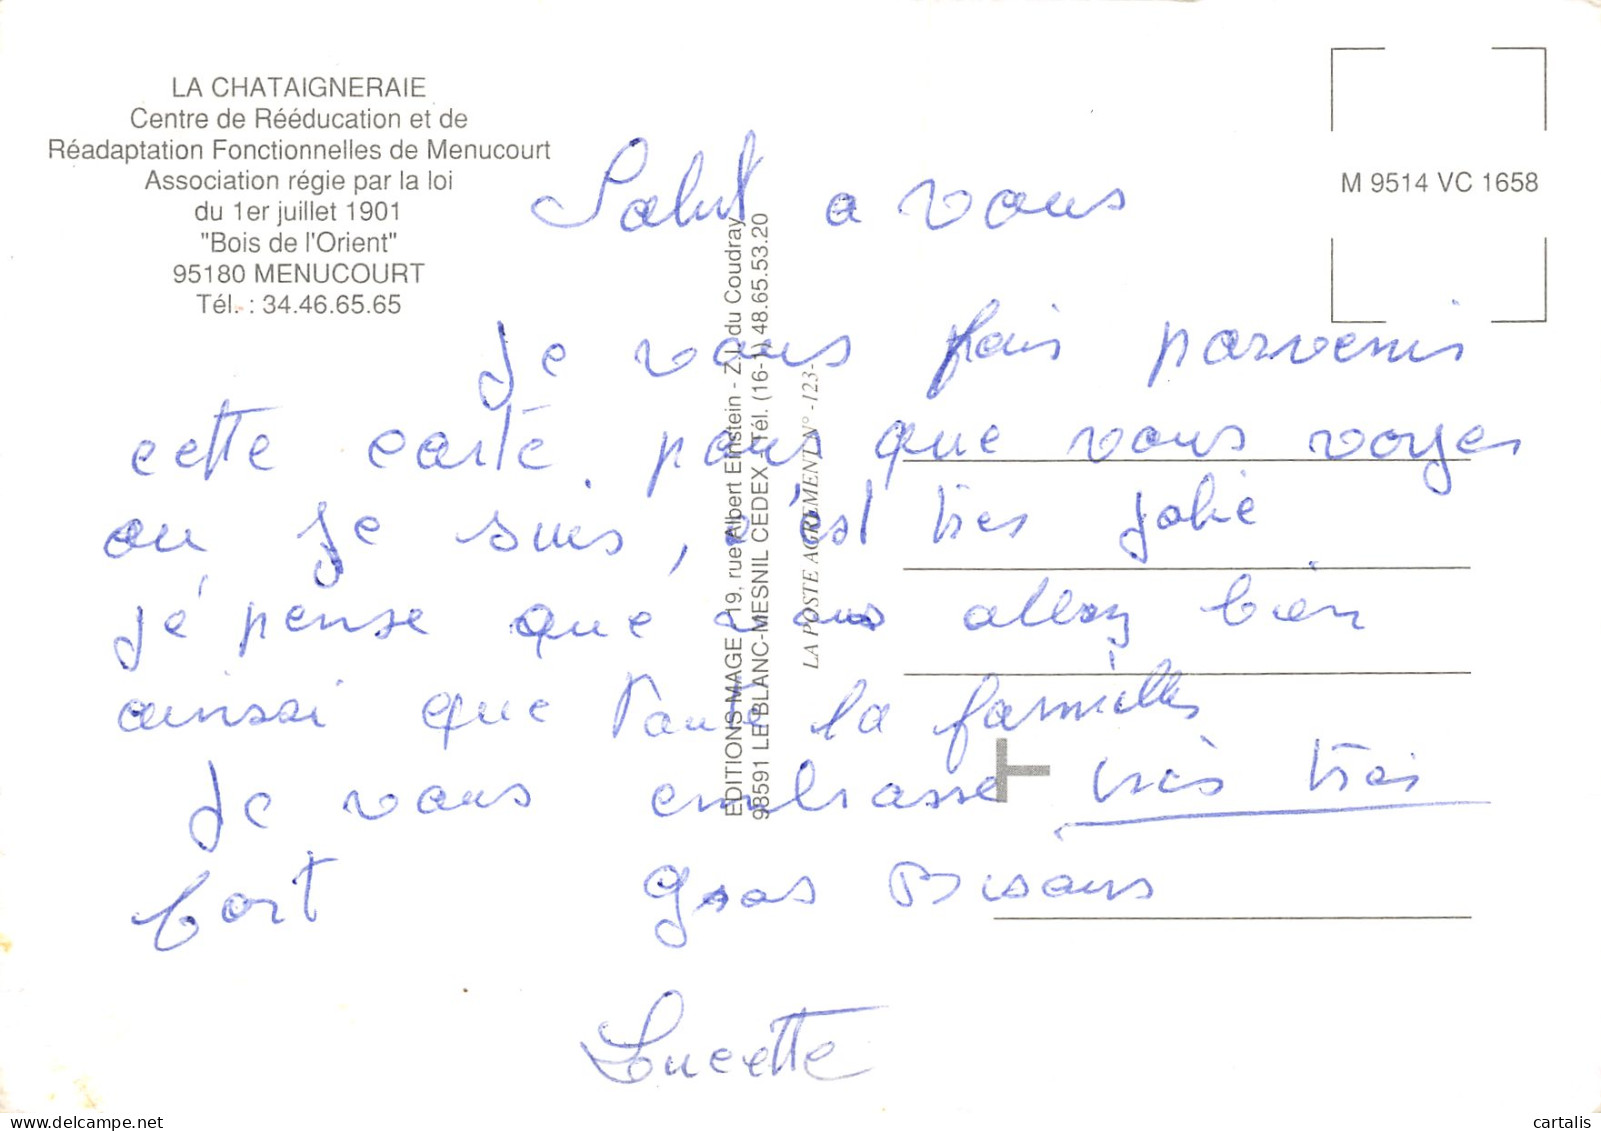 LA CHATAIGNERAIE
Centre de Rééducation et de
Réadaptation Fonctionnelles de Menucourt
Association régie par la loi
du 1er juillet 1901
"Bois de l'Orient"
95180 MENUCOURT
Tél. : 34.46.65.65
M 9514 VC 1658
EDITIONS MAGE - 19, rue Albert Einstein - Z.I. du Coudray
93591 LE BLANC-MESNIL CEDEX - Tél. (16-1) 48.65.53.20
LA POSTE AGREMENT N° -123-
Salut a vous
Je vous fais parvenir
cette carte pour que vous voyes
ou je suis, c'est tres jolie
je pense que vous allez bien
ainsi que toute la familles
Je vous embrasse très trés
fort gros Bisous
Lucette
delcampe.net
cartalis